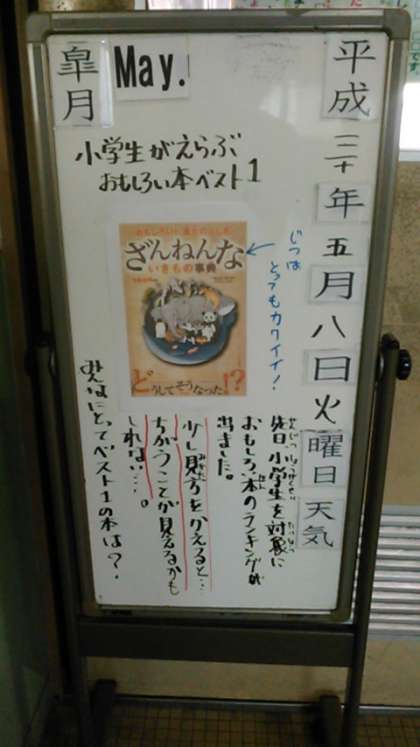 平成三十年五月八日火曜日天気
皐月
May.
小学生がえらぶ
おもしろい本ベスト1
おもしろい!進化のふしぎ
ざんねんな
いきもの事典
どうしてそうなった!?
じつは
とってもカワイイ!
先日小学生を対象に
おもしろい本のランキングが
出ました。
少し見方をかえると…
ちがうことが見えるかも
しれない…。
みんなにとってベスト1の本は?